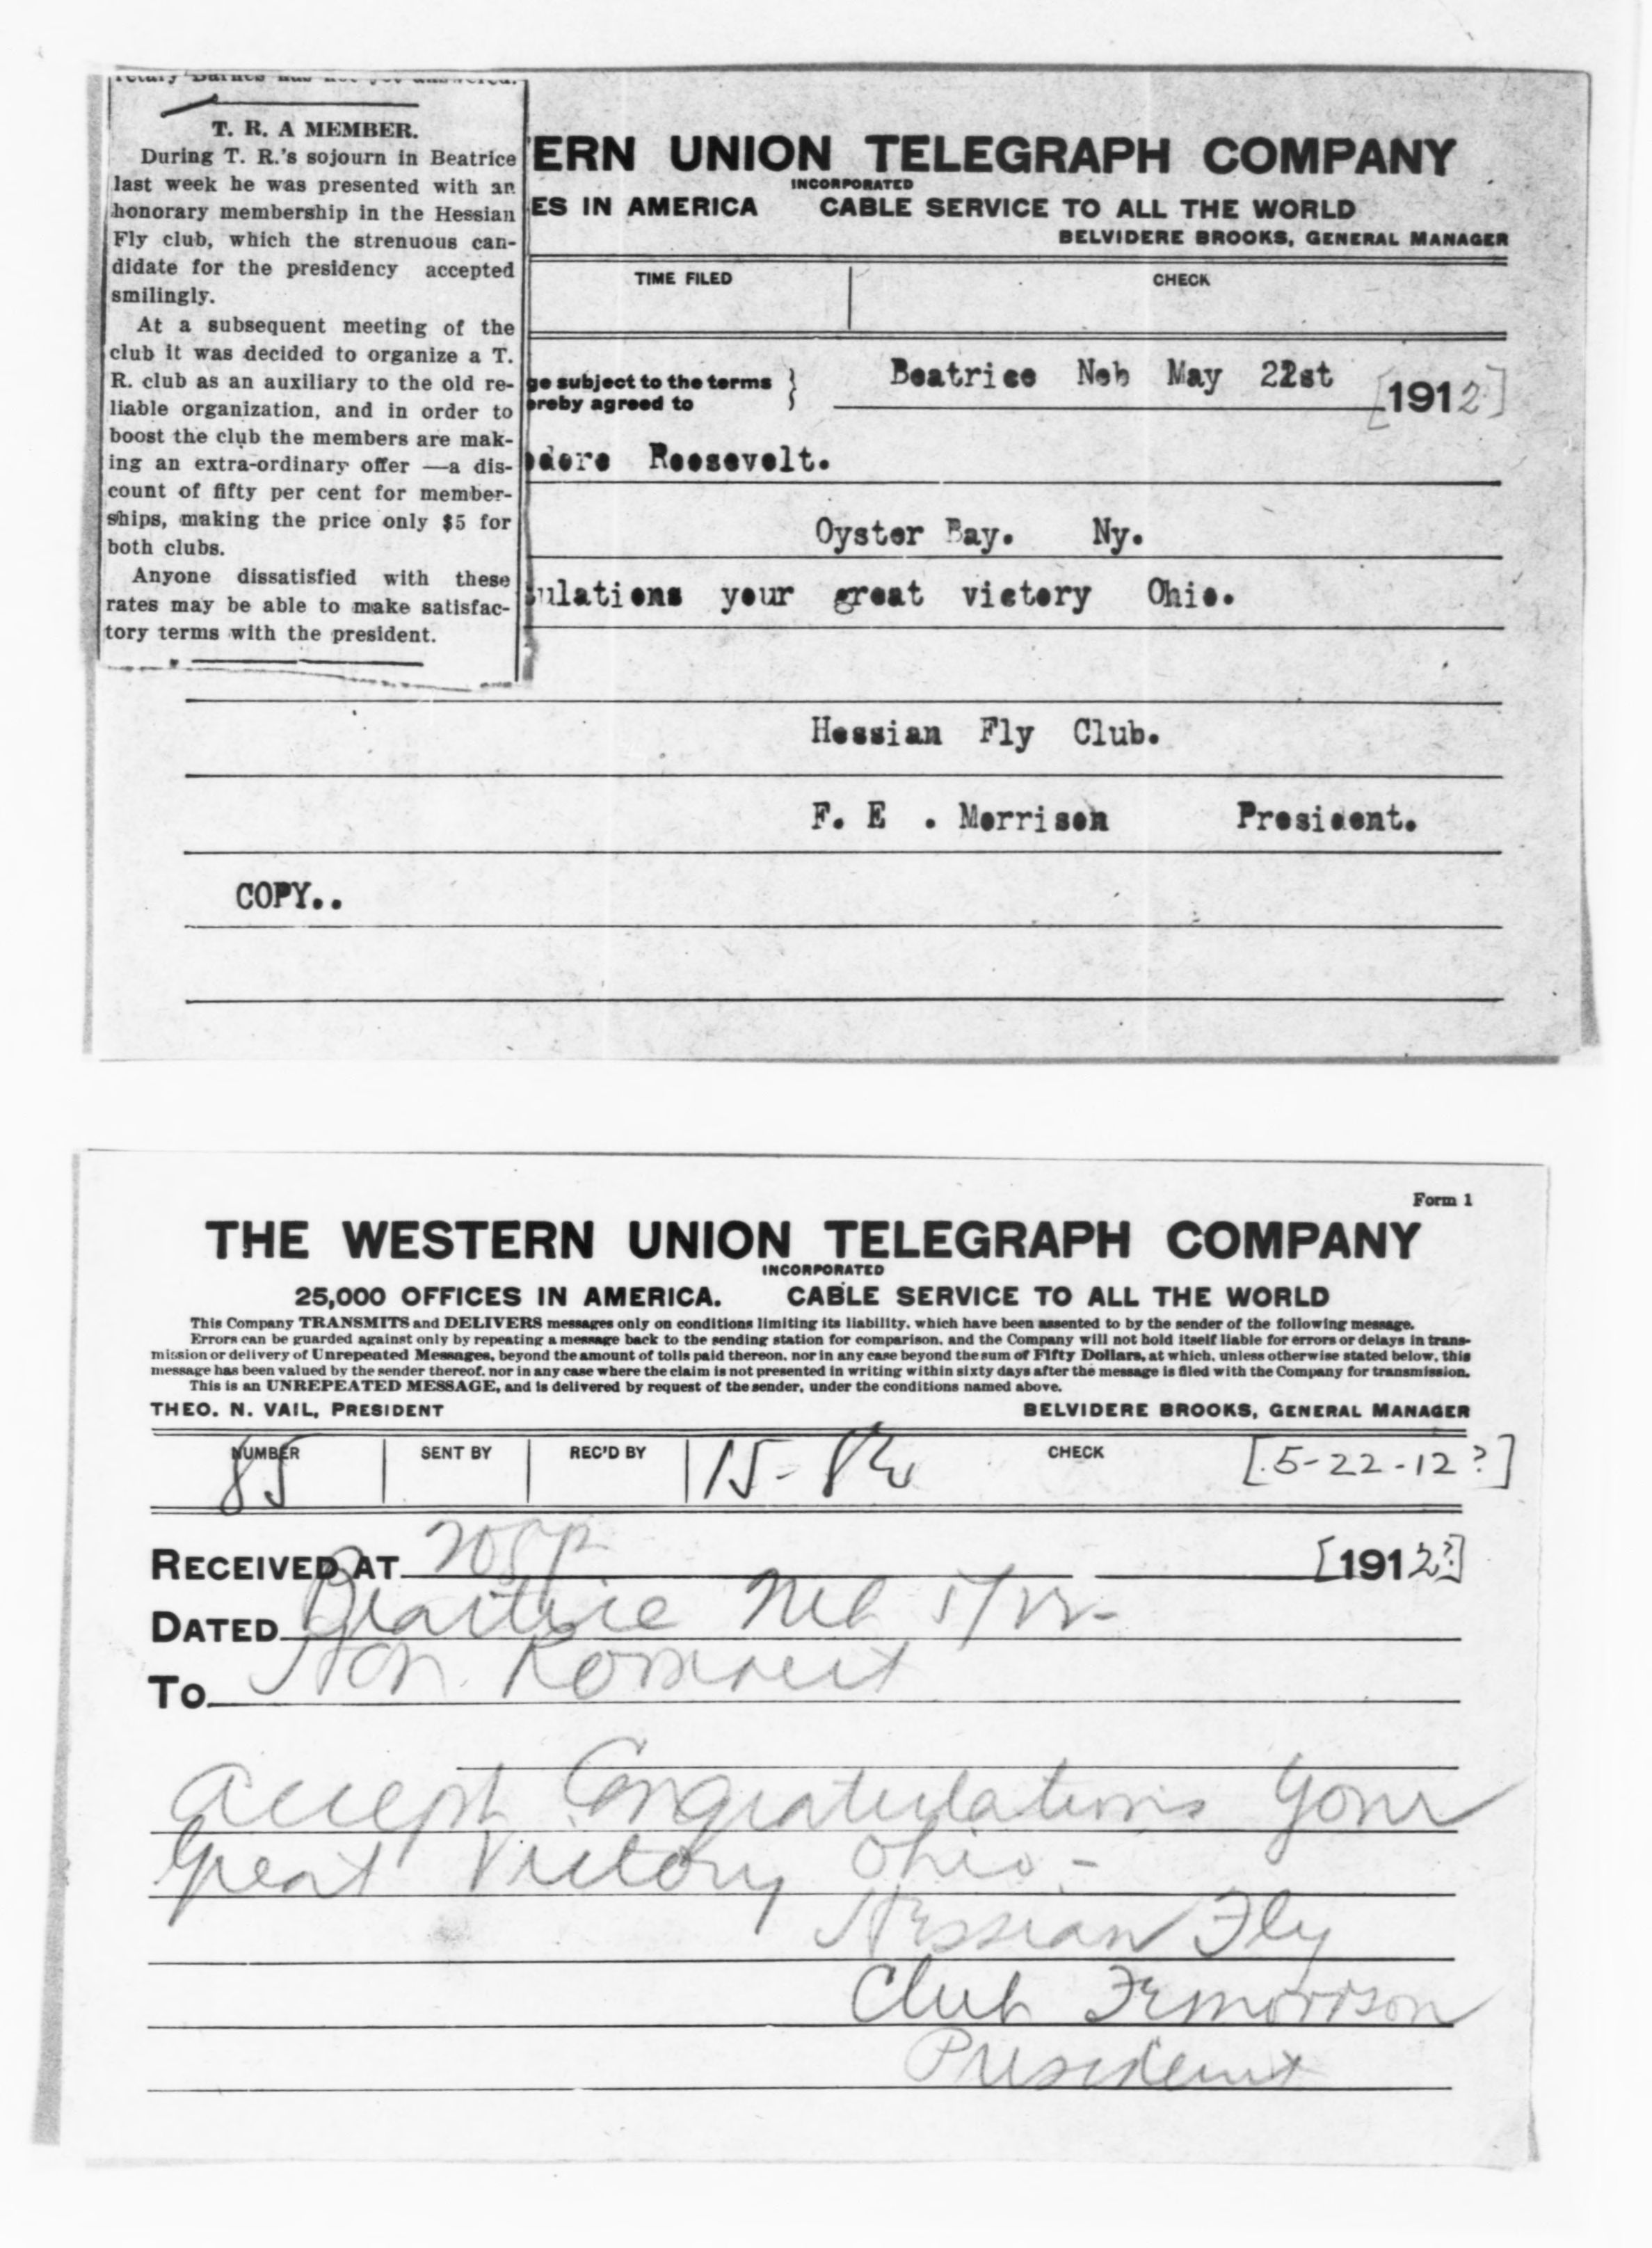 T. R. A MEMBER.
During T. R.'s sojourn in Beatrice
last week he was presented with an
honorary membership in the Hessian
Fly club, which the strenuous can-
didate for the presidency accepted
smilingly.
At a subsequent meeting of the
club it was decided to organize a T.
R. club as an auxiliary to the old re-
liable organization, and in order to
boost the club the members are mak-
ing an extra-ordinary offer —a dis-
count of fifty per cent for member-
ships, making the price only $5 for
both clubs.
Anyone dissatisfied with these
rates may be able to make satisfac-
tory terms with the president.
ERN UNION TELEGRAPH COMPANY
INCORPORATED
ES IN AMERICA CABLE SERVICE TO ALL THE WORLD
BELVIDERE BROOKS, GENERAL MANAGER
TIME FILED CHECK
ge subject to the terms
ereby agreed to
Beatrice Neb May 22st [1912]
odore Roosevelt.
Oyster Bay. Ny.
ulations your great victory Ohio.
Hessian Fly Club.
F. E . Morrison President.
COPY..
Form 1
THE WESTERN UNION TELEGRAPH COMPANY
INCORPORATED
25,000 OFFICES IN AMERICA. CABLE SERVICE TO ALL THE WORLD
This Company TRANSMITS and DELIVERS messages only on conditions limiting its liability, which have been assented to by the sender of the following message.
Errors can be guarded against only by repeating a message back to the sending station for comparison, and the Company will not hold itself liable for errors or delays in trans-
mission or delivery of Unrepeated Messages, beyond the amount of tolls paid thereon, nor in any case beyond the sum of Fifty Dollars, at which, unless otherwise stated below, this
message has been valued by the sender thereof, nor in any case where the claim is not presented in writing within sixty days after the message is filed with the Company for transmission.
This is an UNREPEATED MESSAGE, and is delivered by request of the sender, under the conditions named above.
THEO. N. VAIL, PRESIDENT BELVIDERE BROOKS, GENERAL MANAGER
NUMBER SENT BY REC'D BY CHECK
85 15- [.5-22-12?]
RECEIVED AT [1912?]
DATED Beatrice Neb 5/22-
To Hon. Roosevelt
Accept Congratulations Your
Great Victory Ohio-
Hessian Fly
Club FEMorrison
President